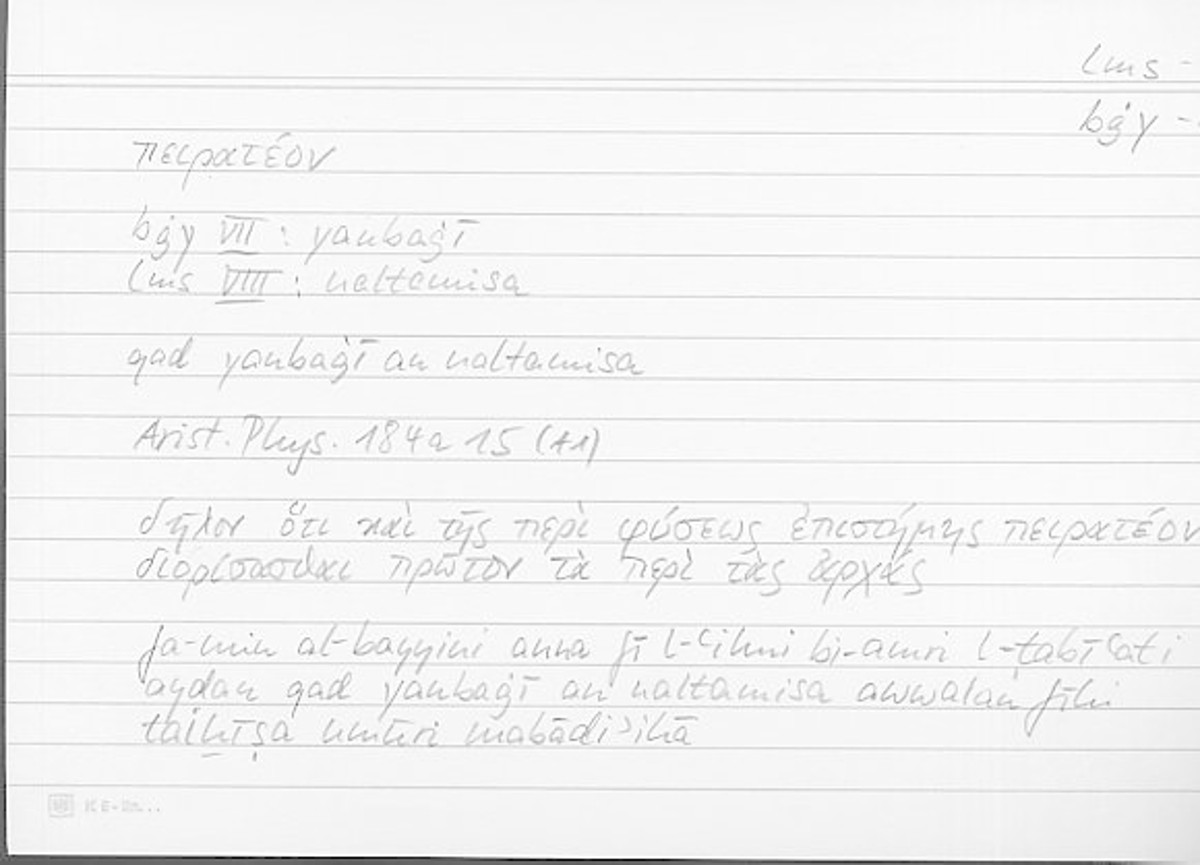 lms -
bġy -
πειρατέον
bġy VII : yanbaġī
lms VIII : naltamisa
qad yanbaġī an naltamisa
Arist. Phys. 184a 15 (A1)
δῆλον ὅτι καὶ τῆς περὶ φύσεως ἐπιστήμης πειρατέον
διορίσασθαι πρῶτον τὰ περὶ τὰς ἀρχάς
fa-min al-bayyini anna fī l-ʿilmi bi-amri l-tabīʿati
aydan qad yanbaġī an naltamisa awwalan fīhi
talḫīṣa umūri mabādiʾihā